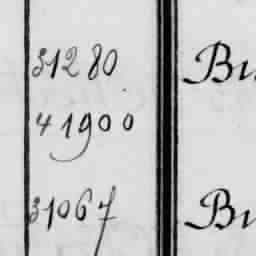 31280 Bu
41900
31067 Bu